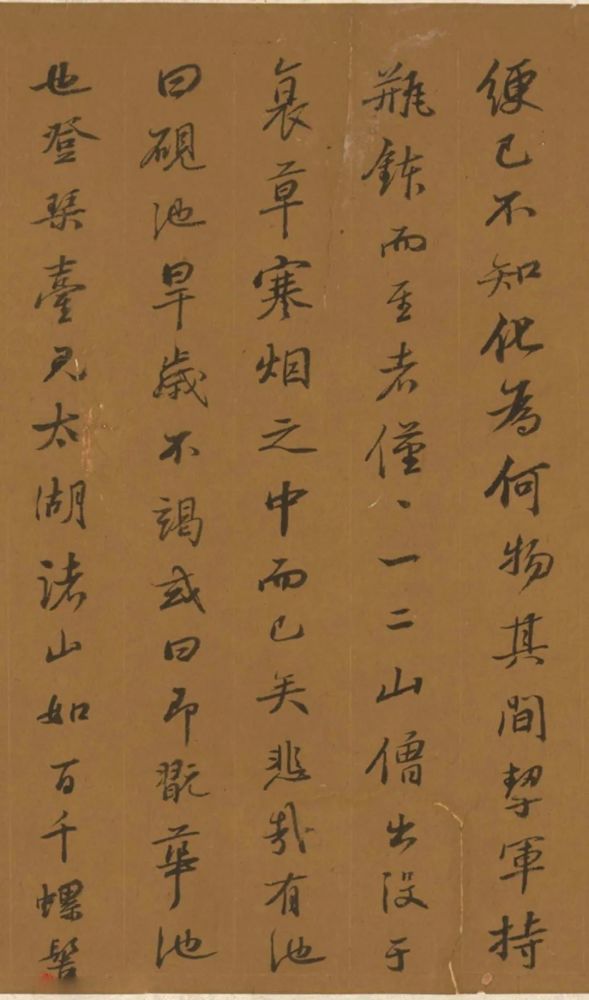 便已不知化為何物其間挈軍持
瓶鉢而至者僅、一二山僧出沒于
衰草寒烟之中而已矣悲哉有池
曰硯池旱歲不竭或曰即翫華池
也登琴臺見太湖諸山如百千螺髻